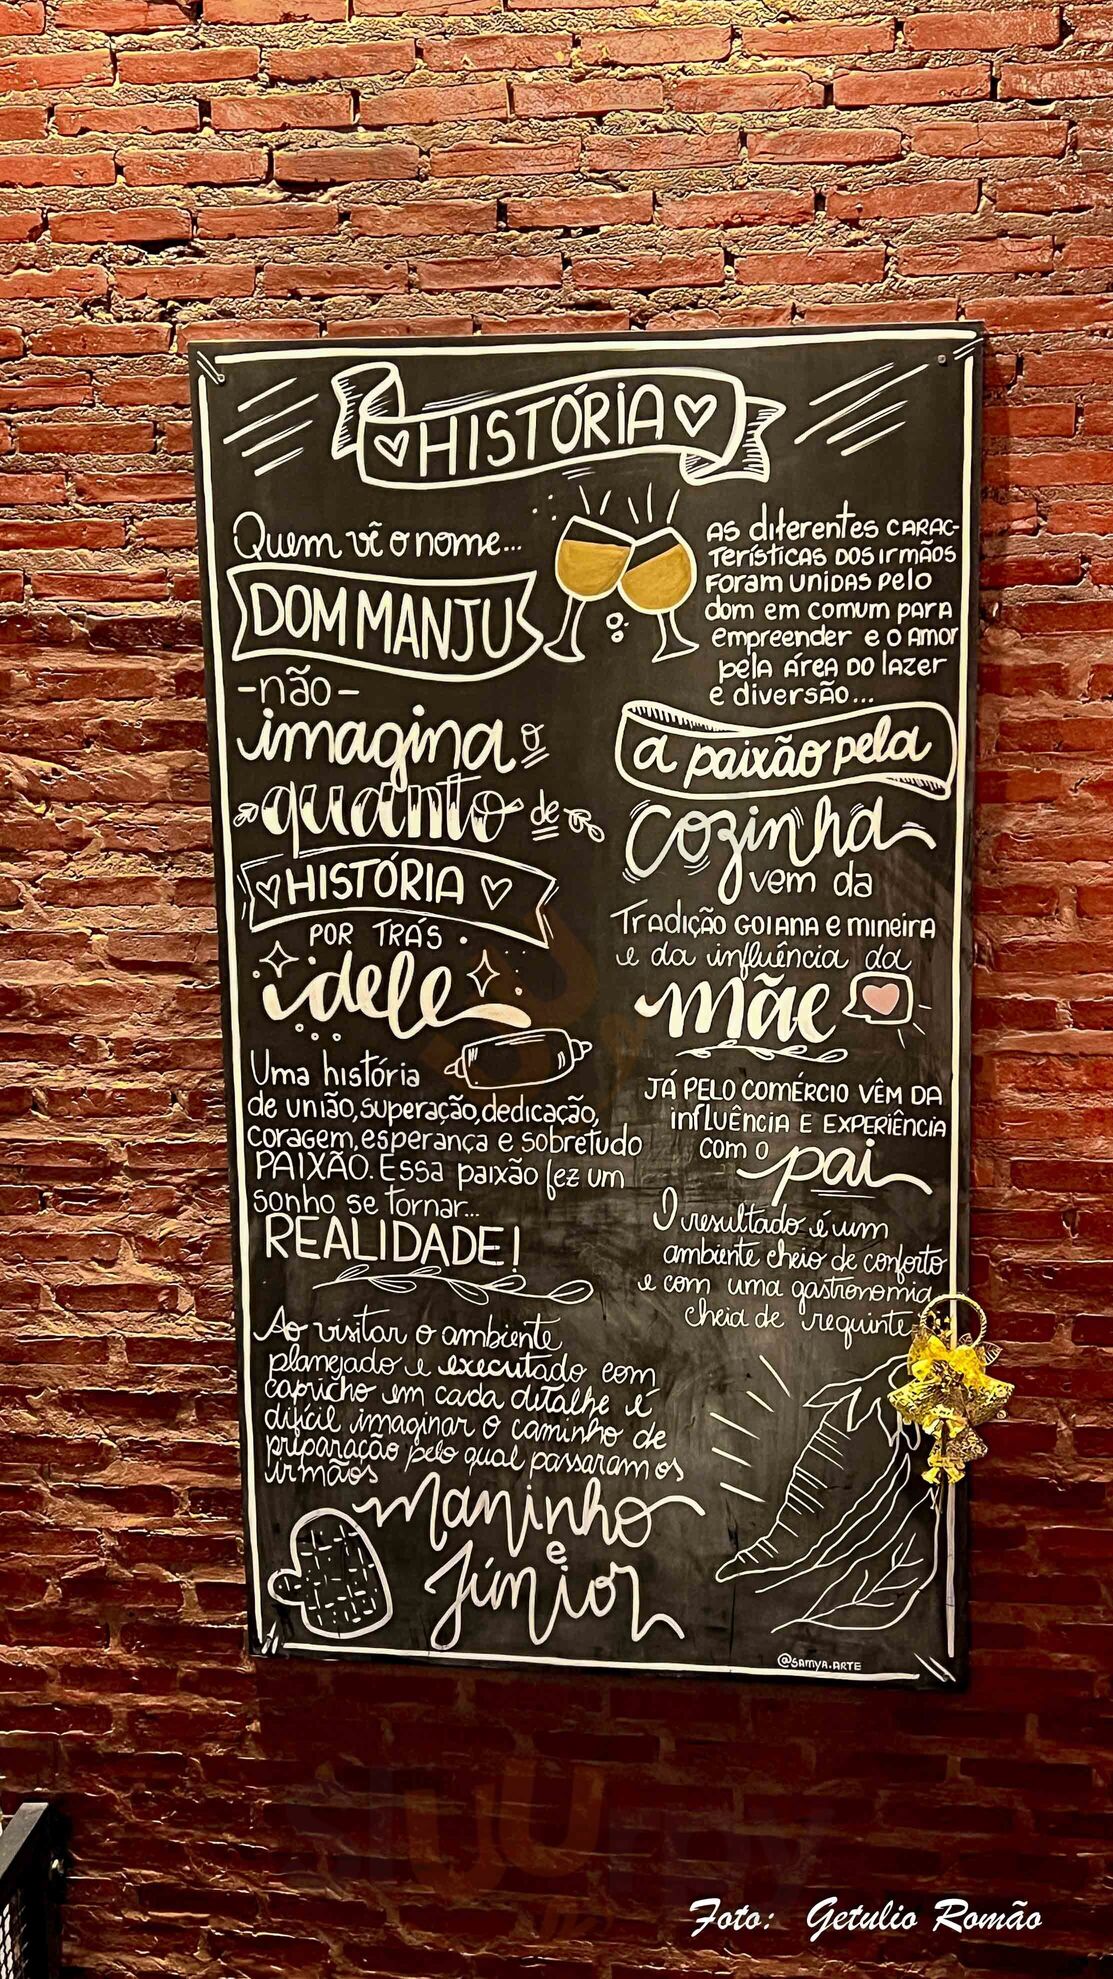 HISTÓRIA
Quem vê o nome...
DOM MANJU
-não-
imagina o
quanto de
HISTÓRIA
POR TRÁS
dele
Uma história
de união, superação, dedicação,
coragem, esperança e sobretudo
PAIXÃO. Essa paixão fez um
sonho se tornar...
REALIDADE!
Ao visitar o ambiente
planejado e executado com
capricho em cada detalhe é
difícil imaginar o caminho de
preparação pelo qual passaram os
irmãos
Maninho
e
Júnior
As diferentes carac-
terísticas dos irmãos
foram unidas pelo
dom em comum para
empreender e o amor
pela área do lazer
e diversão...
a paixão pela
cozinha
vem da
Tradição goiana e mineira
e da influência da
mãe
JÁ PELO COMÉRCIO VÊM DA
influência E EXPERIÊNCIA
com o
pai
O resultado é um
ambiente cheio de conforto
e com uma gastronomia
cheia de requinte
@SAMYA.ARTE
Foto: Getulio Romão